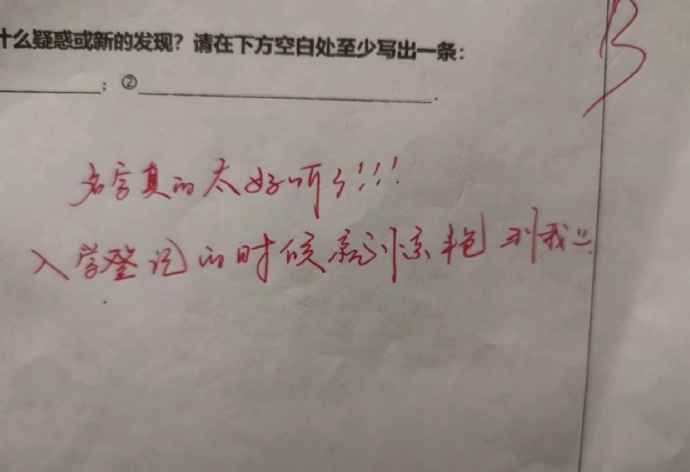 什么疑惑或新的发现？请在下方空白处至少写出一条：
；②
名字真的太好听了!!!
入学登记的时候就惊艳到我